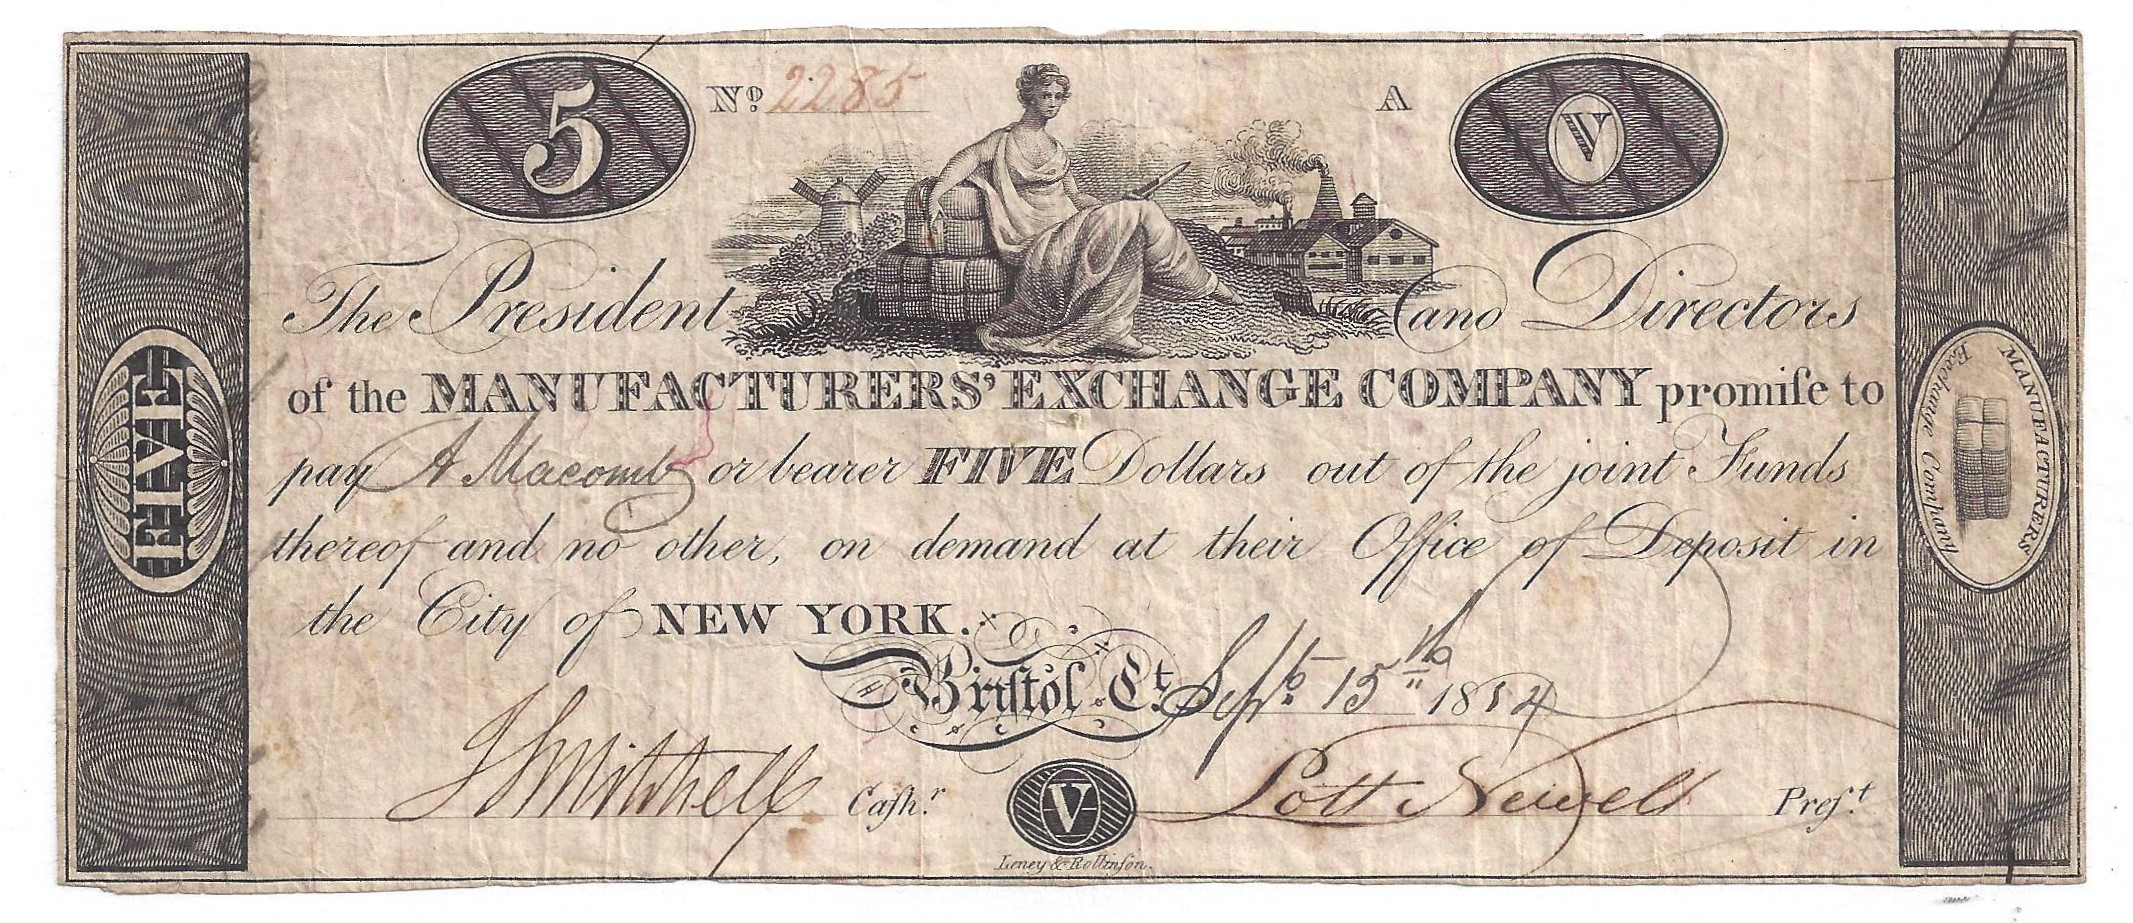 5 Nº 2285 A V
The President and Directors
of the MANUFACTURERS' EXCHANGE COMPANY promiſe to
pay A Macomb or bearer FIVE Dollars out of the joint Funds
thereof and no other, on demand at their Office of Deposit in
the City of NEW YORK.
Briſtol Ct. Sept. 15th 1814
J S Mitchell Caſhr. V Lott Newell Preſt.
Leney & Rollinſon.
FIVE
MANUFACTURERS
Exchange Company